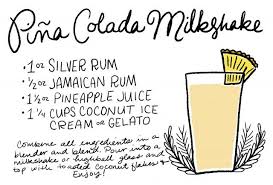 Piña Colada Milkshake
• 1 oz SILVER RUM
• 1/2 oz JAMAICAN RUM
• 1 1/2 oz PINEAPPLE JUICE
• 1 1/4 CUPS COCONUT ICE
CREAM OR GELATO
Combine all ingredients in a
blender and blend. Pour into a
milkshake or highball glass and
top with toasted coconut flakes.
Enjoy!